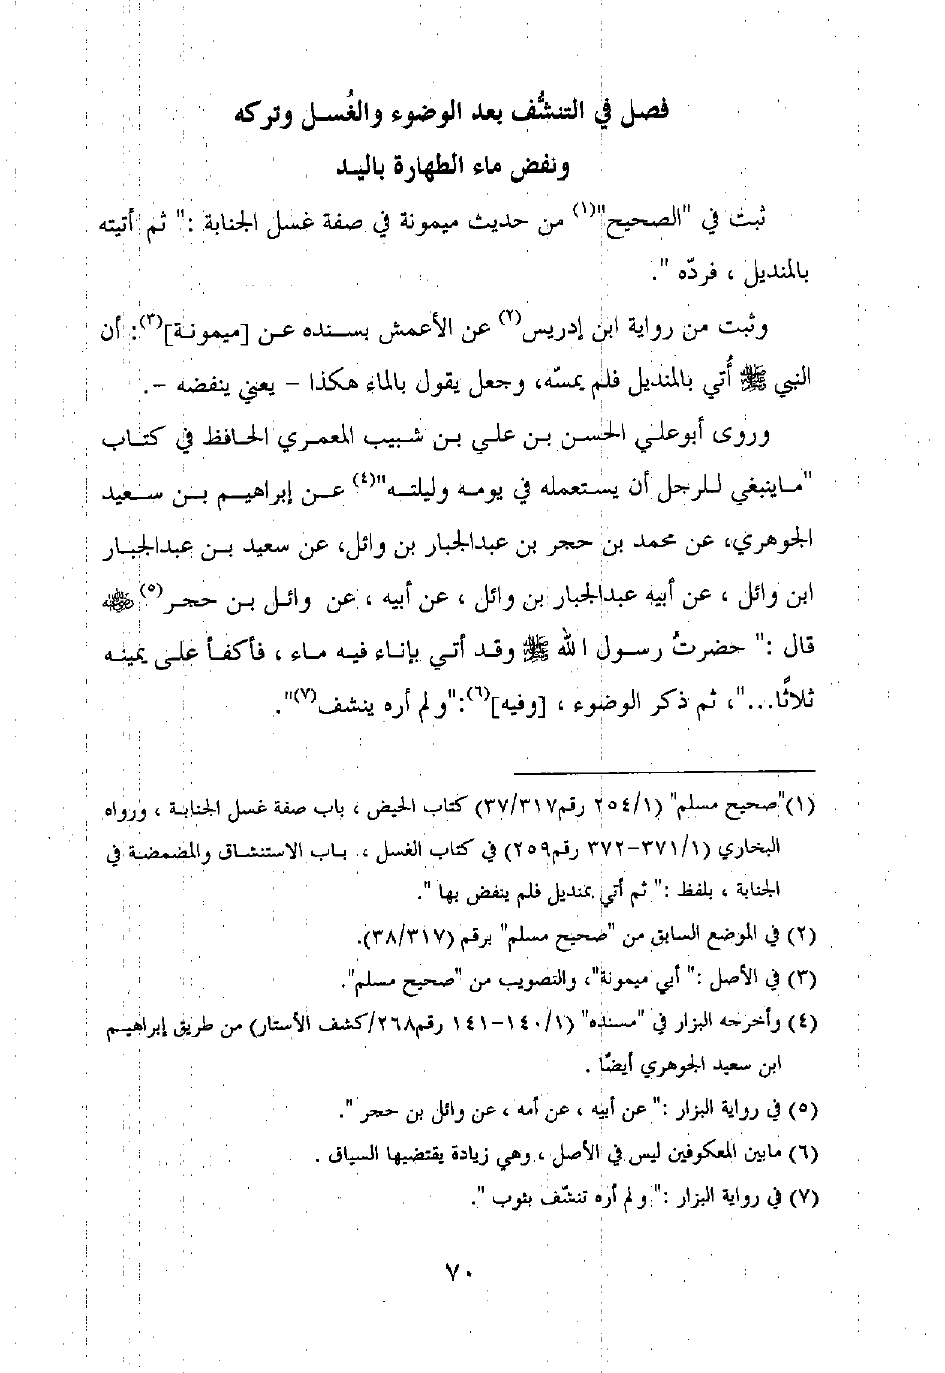 فصل في التنشُّف بعد الوضوء والغُسل وتركه
ونفض ماء الطهارة باليد
ثبت في "الصحيح"(١) من حديث ميمونة في صفة غسل الجنابة :" ثم أتيته
بالمنديل ، فردّه ".
وثبت من رواية ابن إدريس(٢) عن الأعمش بسنده عن [ميمونة](٣): أن
النبي ﷺ أُتي بالمنديل فلم يمسّه، وجعل يقول بالماء هكذا - يعني ينفضه -.
وروى أبوعلي الحسن بن علي بن شبيب المعمري الحافظ في كتاب
"ماينبغي للرجل أن يستعمله في يومه وليلته"(٤) عن إبراهيم بن سعيد
الجوهري، عن محمد بن حجر بن عبدالجبار بن وائل، عن سعيد بن عبدالجبار
ابن وائل ، عن أبيه عبدالجبار بن وائل ، عن أبيه ، عن وائل بن حجر(٥) رضي الله عنه
قال :" حضرتُ رسول الله ﷺ وقد أتي بإناء فيه ماء ، فأكفأ على يمينه
ثلاثًا..."، ثم ذكر الوضوء ، [وفيه](٦):"ولم أره ينشف(٧)".
(١)"صحيح مسلم" (٢٥٤/١ رقم٣٧/٣١٧) كتاب الحيض ، باب صفة غسل الجنابة ، ورواه
البخاري (٣٧١/١-٣٧٢ رقم٢٥٩) في كتاب الغسل ، باب الاستنشاق والمضمضة في
الجنابة ، بلفظ :" ثم أتي بمنديل فلم ينفض بها ".
(٢) في الموضع السابق من "صحيح مسلم" برقم (٣٨/٣١٧).
(٣) في الأصل :" أبي ميمونة"، والتصويب من "صحيح مسلم".
(٤) وأخرجه البزار في "مسنده" (١٤٠/١-١٤١ رقم٢٦٨/كشف الأستار) من طريق إبراهيم
ابن سعيد الجوهري أيضًا .
(٥) في رواية البزار :" عن أبيه ، عن أمه ، عن وائل بن حجر ".
(٦) مابين المعكوفين ليس في الأصل ، وهي زيادة يقتضيها السياق .
(٧) في رواية البزار :" ولم أره تنشّف بثوب ".
٧٠